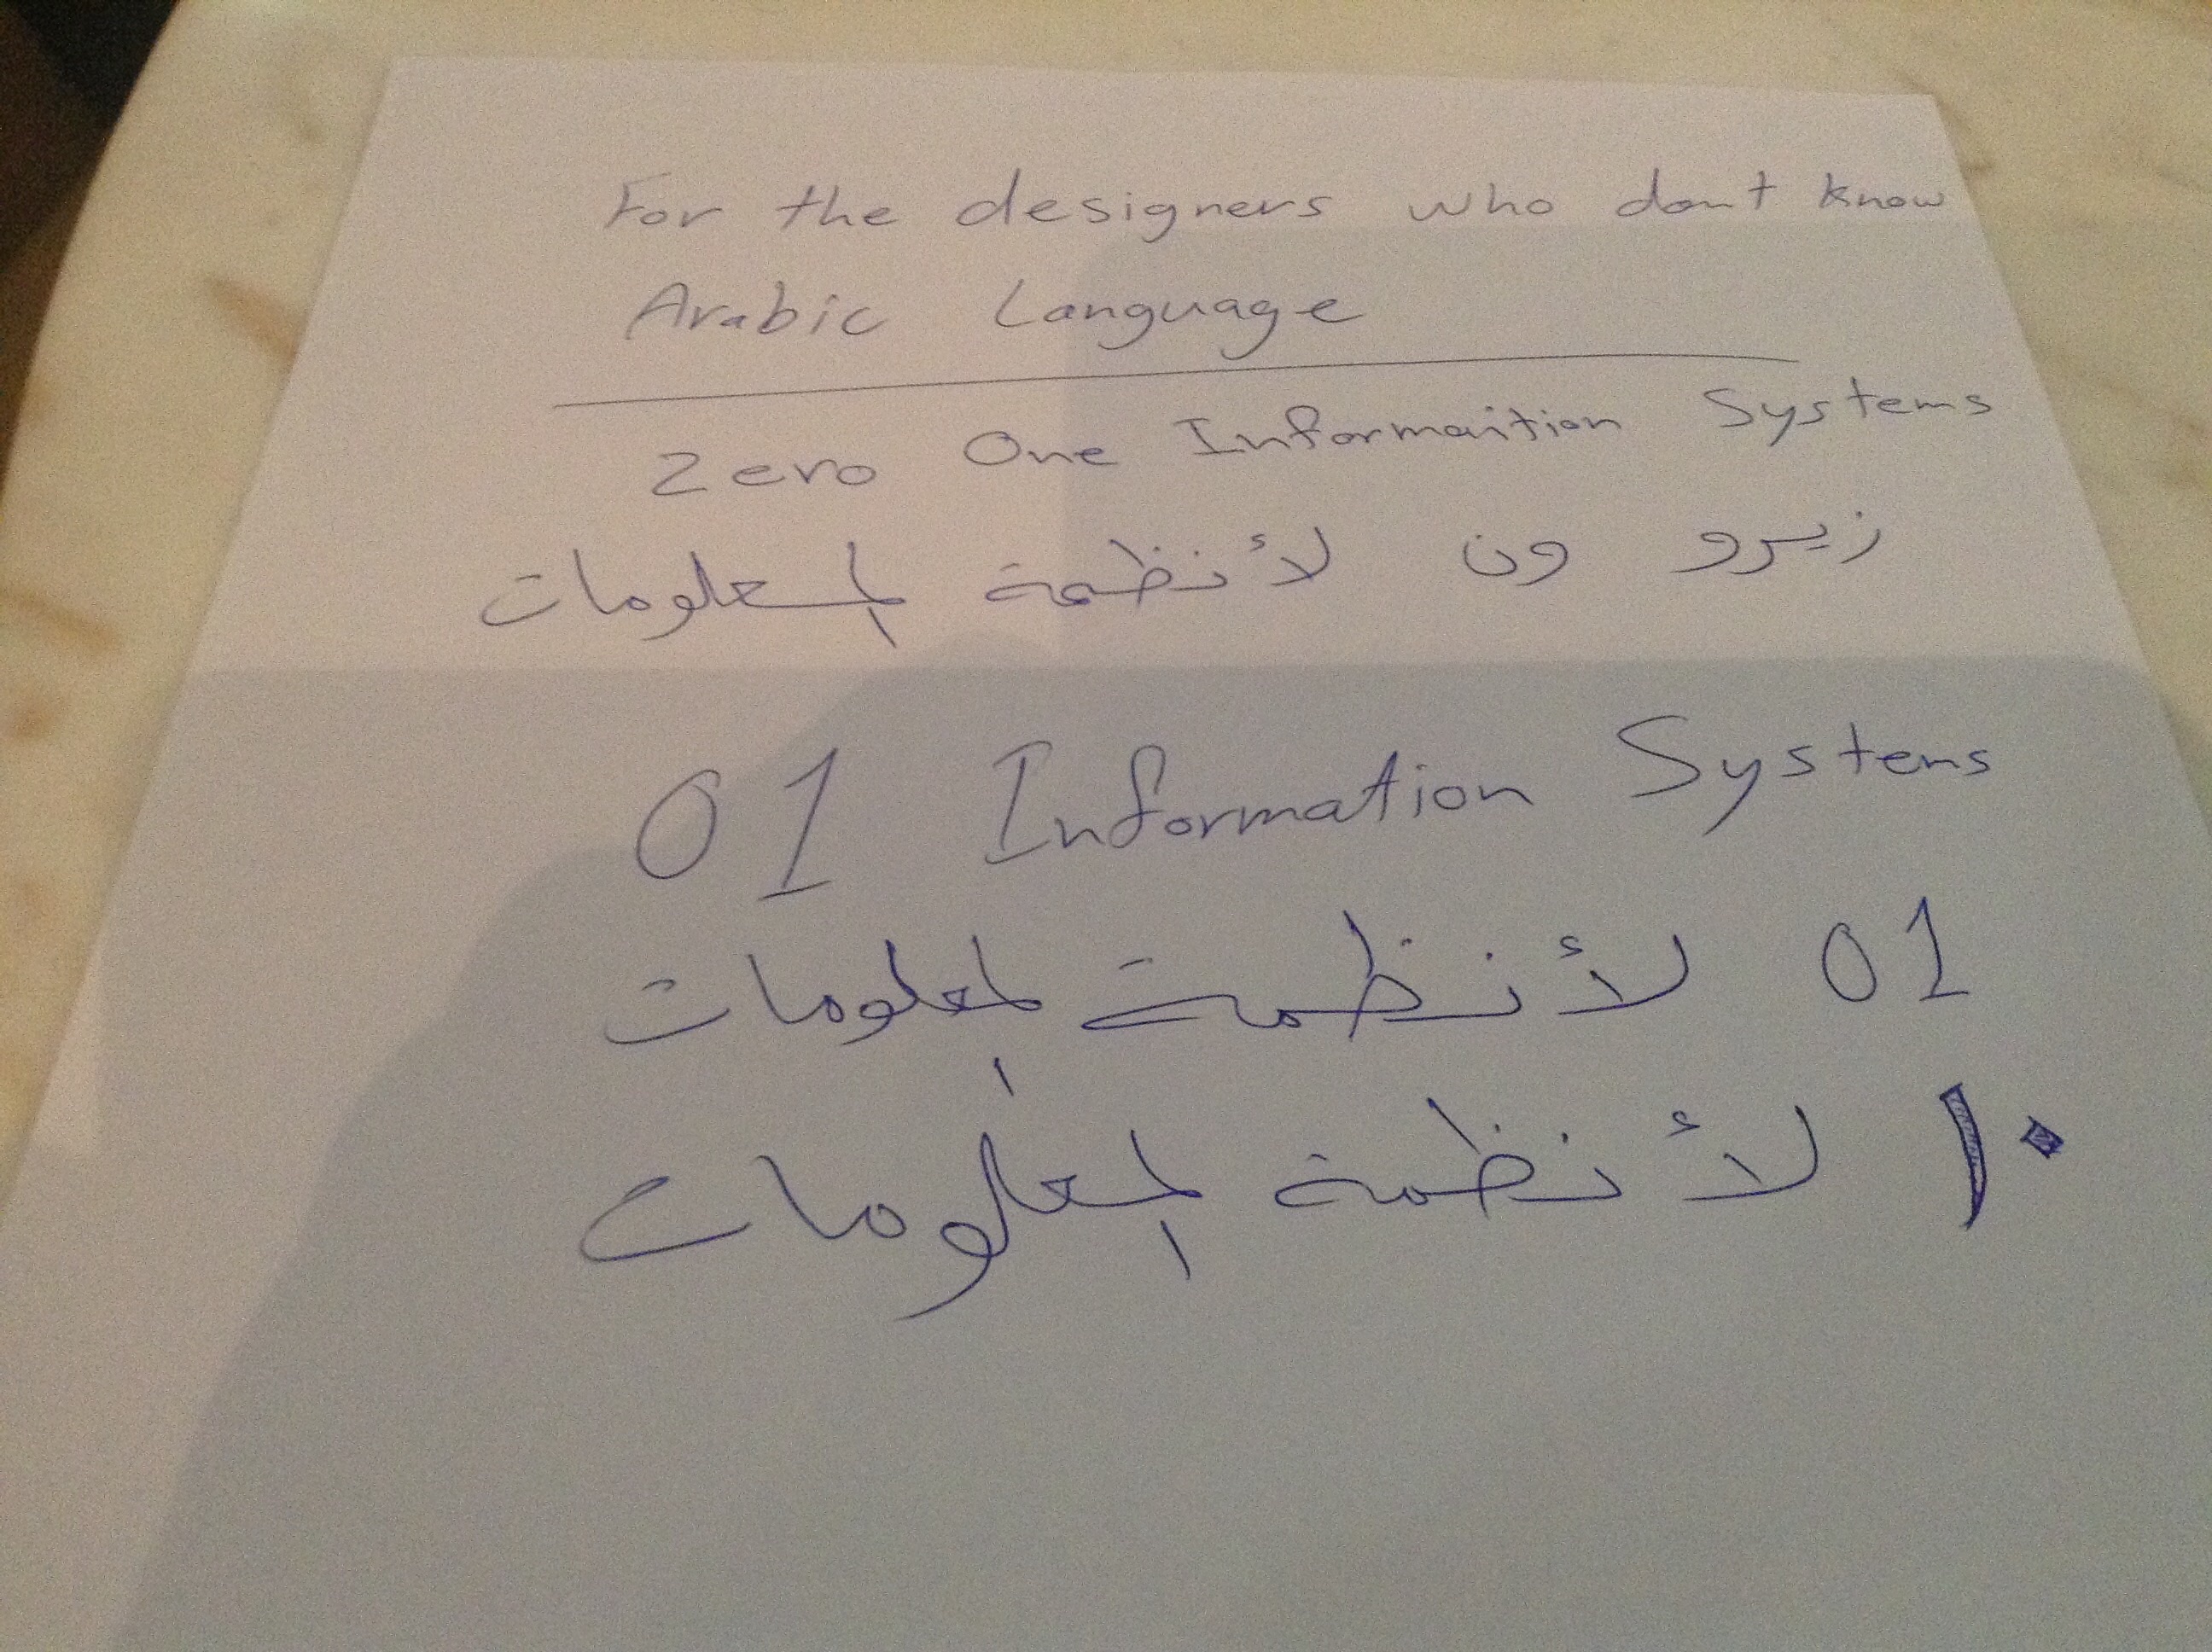 For the designers who dont know
Arabic Language
Zero One Information Systems
زيرو ون لأنظمة المعلومات
01 Information Systems
01 لأنظمة المعلومات
٠١ لأنظمة المعلومات